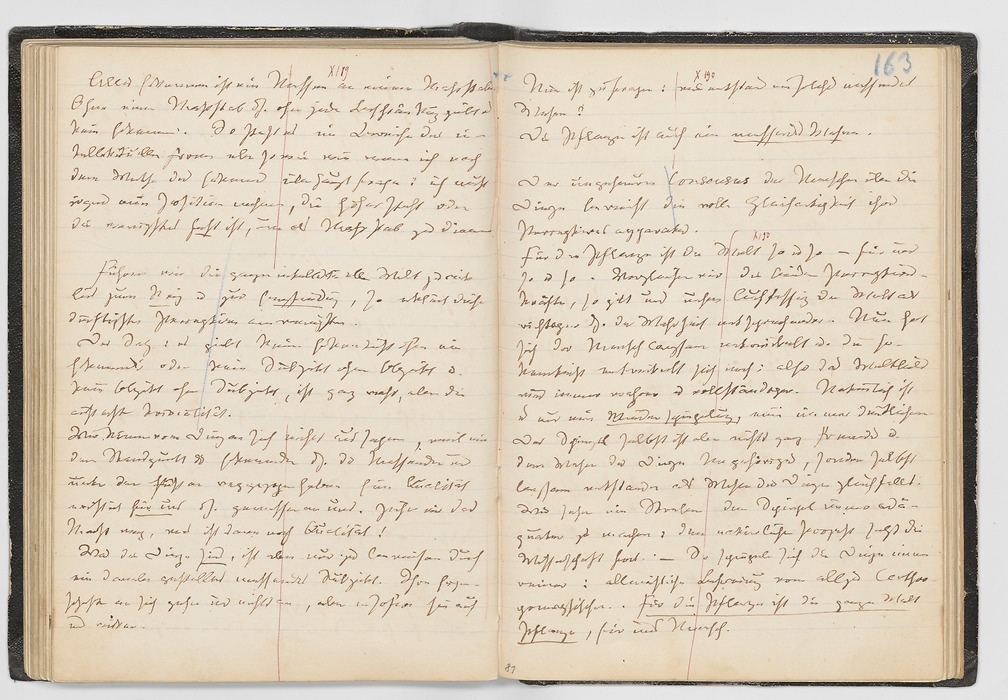 X 189
Alles Erkennen ist ein Messen an einem Maßstabe.
Ohne einen Maßstab, d.h. ohne jede Beschränkung, giebt es
kein Erkennen. So steht es im Bereiche der in-
tellektuellen Formen ebenso wie wenn ich nach
dem Werthe des Erkennens überhaupt frage: ich muß
irgend eine Position nehmen, die höher steht oder
die wenigstens fest ist, um als Maßstab zu dienen.
Führen wir die ganze intellektuelle Welt zurück
bis zum Reiz u. zur Empfindung, so erklärt diese
dürftigste Perception am wenigsten.
Der Satz: es giebt kein Erkennen ohne ein
Erkennendes oder kein Subjekt ohne Objekt u.
kein Objekt ohne Subjekt, ist ganz wahr, aber die
äußerste Trivialität.
Wir können vom Ding an sich nichts aussagen, weil wir
den Standpunkt des Erkennenden d.h. des Messenden uns
unter den Füßen weggezogen haben. Eine Qualität
existirt für uns d.h. gemessen an uns. Ziehn wir das
Maß weg, was ist dann noch Qualität!
Was die Dinge sind, ist aber nur zu beweisen durch
ein daneben gestelltes messendes Subjekt. Ihre Eigen-
schaften an sich gehen uns nichts an, aber insofern sie auf
uns wirken.
163
X 190
Nun ist zu fragen: wie entstand ein solches messendes
Wesen?
Die Pflanze ist auch ein messendes Wesen.
Der ungeheure Consensus der Menschen über die
Dinge beweist die volle Gleichartigkeit ihres
Perceptionsapparates.
X 190
Für die Pflanze ist die Welt so u. so — für uns
so u. so. Vergleichen wir die beiden Perceptions-
kräfte, so gilt uns unsere Auffassung der Welt als
richtiger d.h. der Wahrheit entsprechender. Nun hat
sich der Mensch langsam entwickelt u. die Er-
kenntniß entwickelt sich noch: also das Weltbild
wird immer wahrer u. vollständiger. Natürlich ist
es nur eine Wiederspiegelung, eine immer deutlichere.
Der Spiegel selbst ist aber nichts ganz Fremdes u.
dem Wesen der Dinge Ungehöriges, sondern selbst
langsam entstanden als Wesen der Dinge gleichfalls.
Wir sehen ein Streben, den Spiegel immer adä-
quater zu machen: den natürlichen Prozeß setzt die
Wissenschaft fort. — So spiegeln sich die Dinge immer
reiner: allmähliche Befreiung vom allzu Anthro-
pomorphischen. Für die Pflanze ist die ganze Welt
Pflanze, für uns Mensch.
81